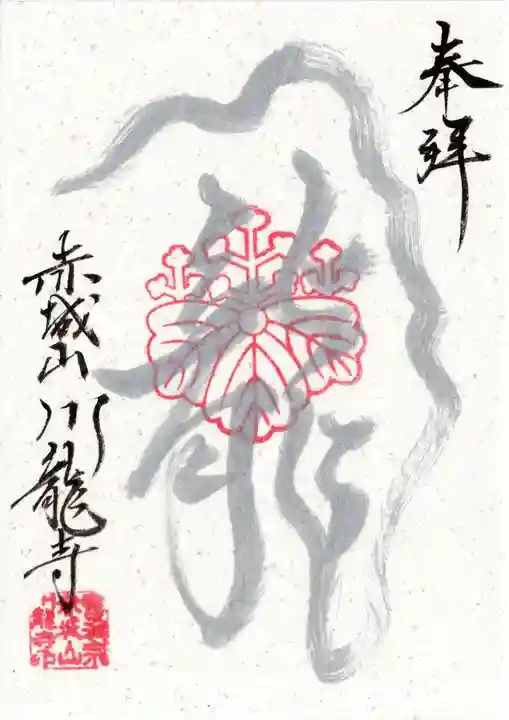 奉拝
龍
赤城山川龍寺